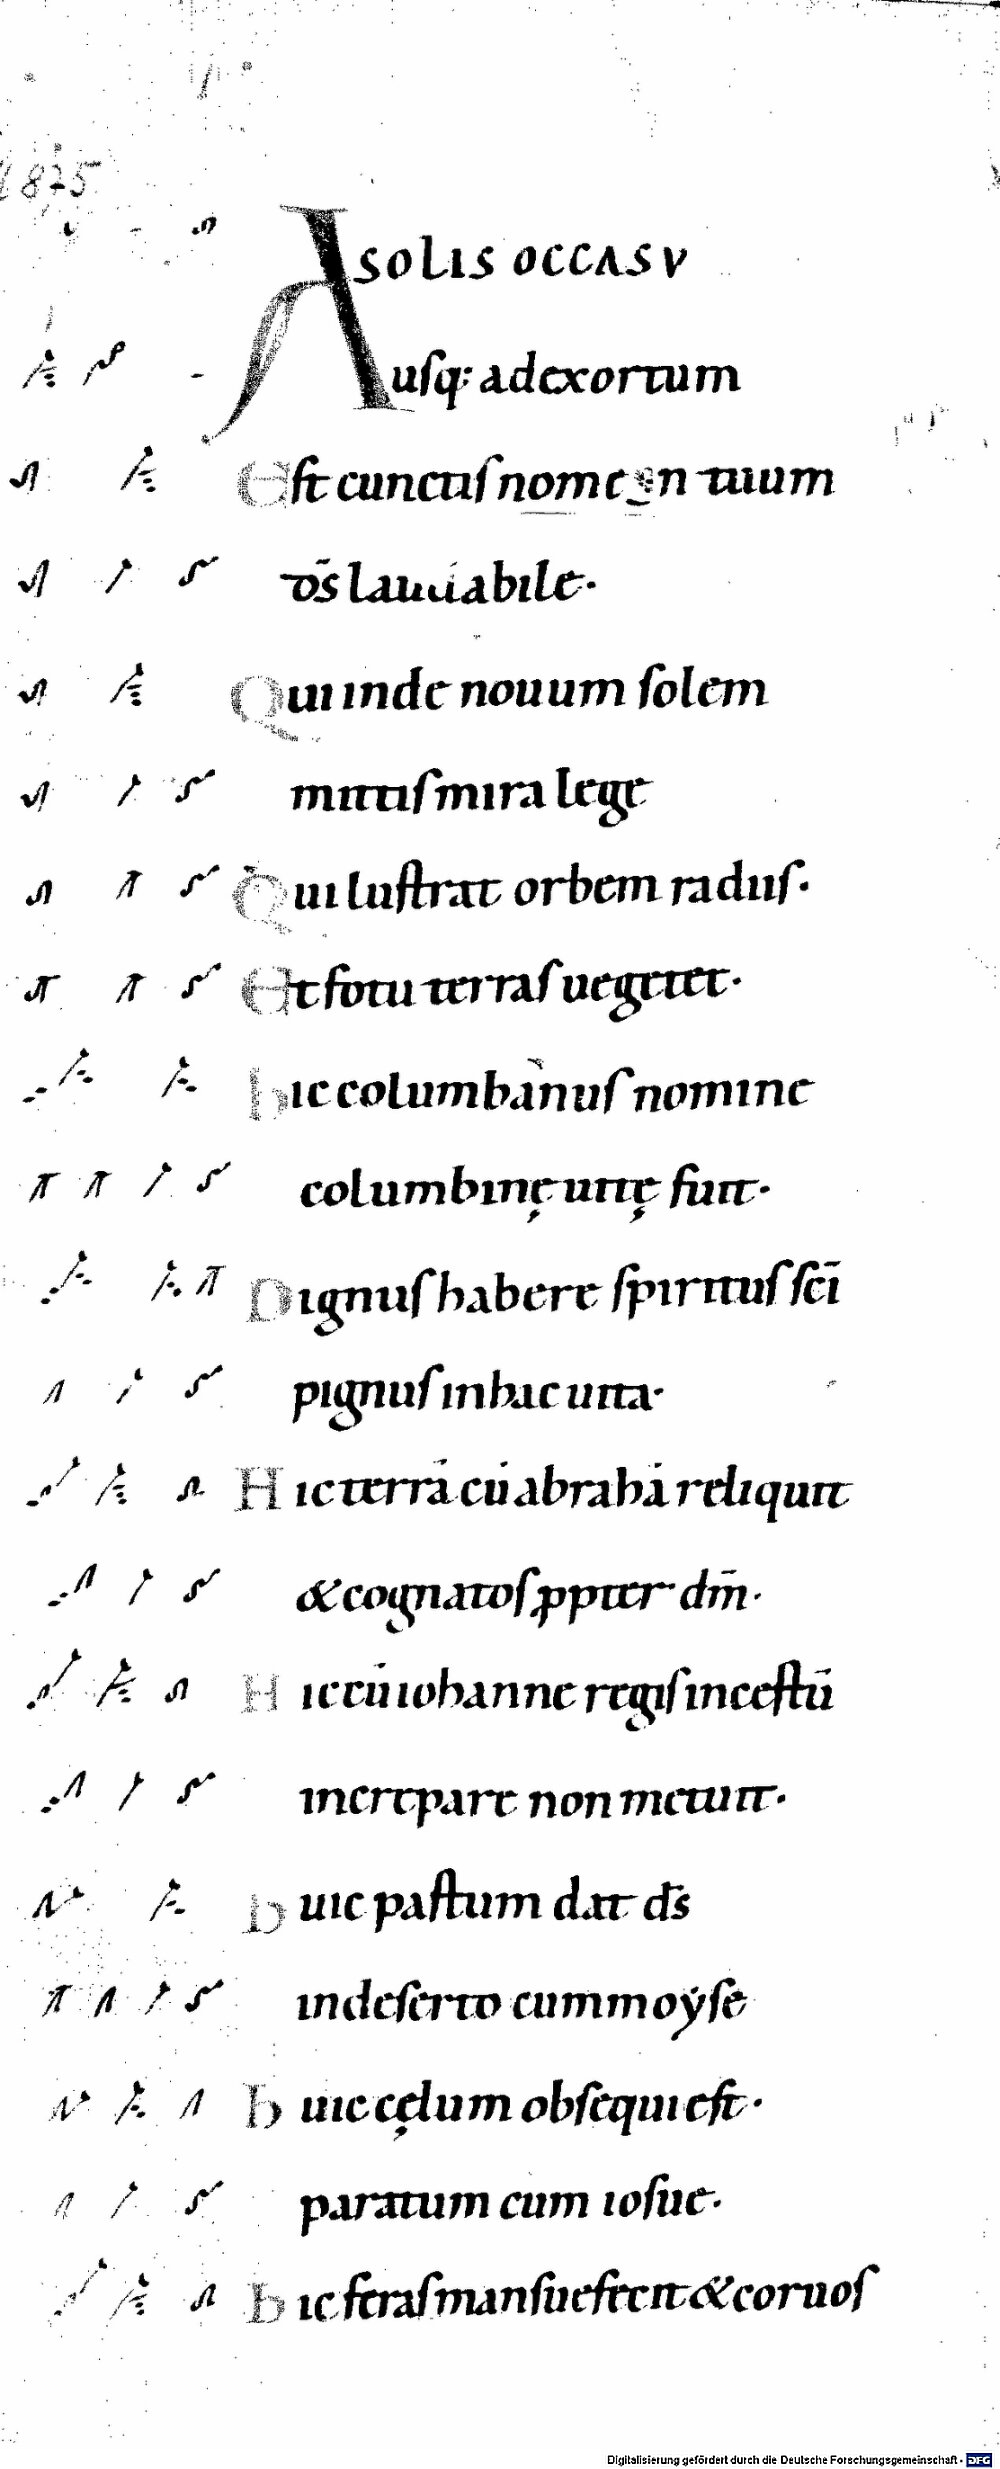 1875
A SOLIS OCCASV
usq: ad exortum
Est cunctis nomen tuum
d̄s laudabile·
Qui inde nouum solem
mittis mira lege
Qui lustrat orbem radiis·
Et fotu terras uegetet·
hic columbanus nomine
columbinę uitę fuit·
Dignus habere spiritus sc̄i
pignus in hac uita·
Hic terrā cū abrahā reliquit
& cognatos ꝓpter dn̄m·
Hic cū iohanne regis incestū
increpare non metuit·
huic pastum dat d̄s
in deserto cum moẏse
huic cęlum obsequi est·
paratum cum iosue·
hic feras mansuefecit & coruos
Digitalisierung gefördert durch die Deutsche Forschungsgemeinschaft - DFG